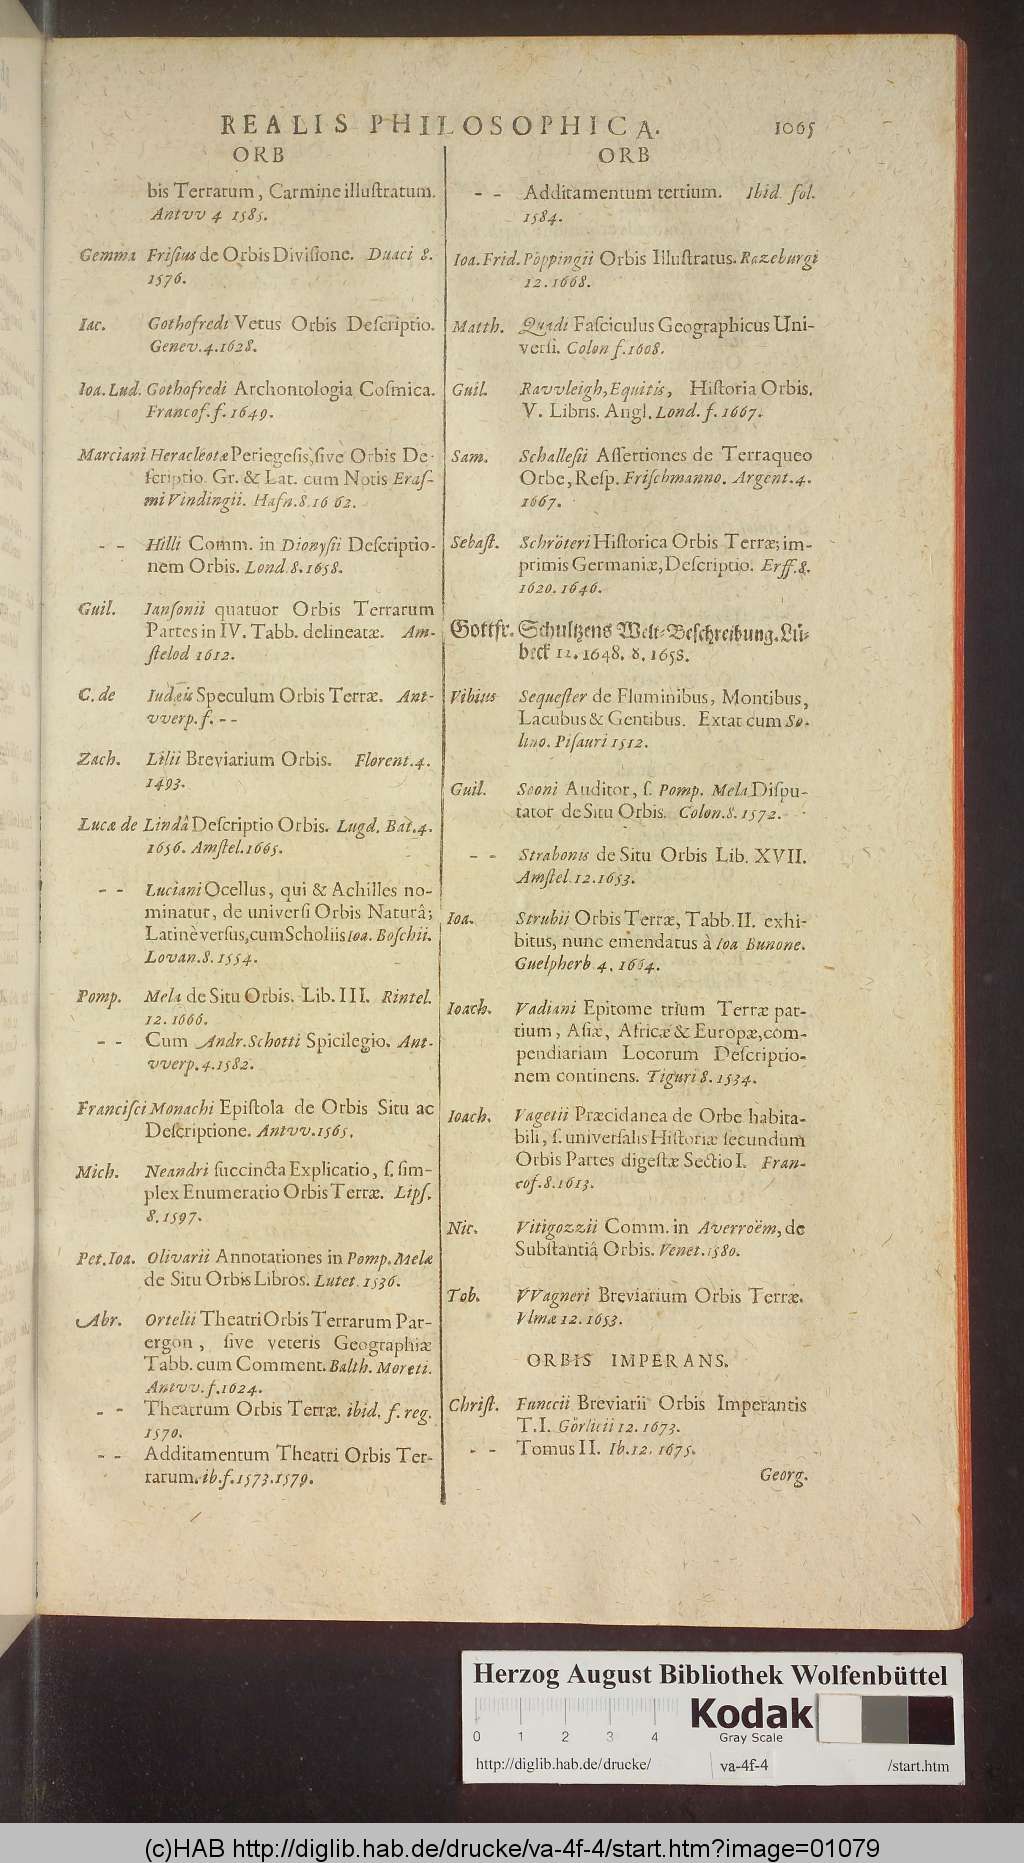 REALIS PHILOSOPHICA. 1065
ORB
bis Terrarum, Carmine illuſtratum.
Antvv 4 1585.
Gemma Friſius de Orbis Diviſione. Duaci 8.
1576.
Iac. Gothofredi Vetus Orbis Deſcriptio.
Genev. 4. 1628.
Ioa. Lud. Gothofredi Archontologia Coſmica.
Francof. f. 1649.
Marciani Heracleotæ Periegeſis, ſive Orbis De-
ſcriptio. Gr. & Lat. cum Notis Eraſ-
mi Vindingii. Hafn. 8. 16 62.
- - Hilli Comm. in Dionyſii Deſcriptio-
nem Orbis. Lond. 8. 1658.
Guil. Ianſonii quatuor Orbis Terrarum
Partes in IV. Tabb. delineatæ. Am-
ſtelod 1612.
C. de Iudæis Speculum Orbis Terræ. Ant-
vverp. f. - -
Zach. Lilii Breviarium Orbis. Florent. 4.
1493.
Lucæ de Lindâ Deſcriptio Orbis. Lugd. Bat. 4.
1656. Amſtel. 1665.
- - Luciani Ocellus, qui & Achilles no-
minatur, de univerſi Orbis Naturâ;
Latinè verſus, cum Scholiis Ioa. Boſchii.
Lovan. 8. 1554.
Pomp. Mela de Situ Orbis. Lib. III. Rintel.
12. 1666.
- - Cum Andr. Schotti Spicilegio. Ant-
vverp. 4. 1582.
Franciſci Monachi Epiſtola de Orbis Situ ac
Deſcriptione. Antvv. 1565.
Mich. Neandri ſuccincta Explicatio, ſ. ſim-
plex Enumeratio Orbis Terræ. Lipſ.
8. 1597.
Pet. Ioa. Olivarii Annotationes in Pomp. Melæ
de Situ Orbis Libros. Lutet. 1536.
Abr. Ortelii Theatri Orbis Terrarum Par-
ergon, ſive veteris Geographiæ
Tabb. cum Comment. Balth. Moreti.
Antvv. f. 1624.
- - Theatrum Orbis Terræ. ibid. f. reg.
1570.
- - Additamentum Theatri Orbis Ter-
rarum. ib. f. 1573. 1579.
ORB
- - Additamentum tertium. Ibid. fol.
1584.
Ioa. Frid. Pöppingii Orbis Illuſtratus. Razeburgi
12. 1668.
Matth. Quadi Faſciculus Geographicus Uni-
verſi. Colon f. 1608.
Guil. Ravvleigh, Equitis, Hiſtoria Orbis.
V. Libris. Angl. Lond. f. 1667.
Sam. Schalleſii Aſſertiones de Terraqueo
Orbe, Reſp. Friſchmanno. Argent. 4.
1667.
Sebaſt. Schröteri Hiſtorica Orbis Terræ; im-
primis Germaniæ, Deſcriptio. Erff. 8.
1620. 1646.
Gottfr. Schultzens Welt-Beſchreibung. Lü-
beck 12. 1648. 8. 1658.
Vibius Sequeſter de Fluminibus, Montibus,
Lacubus & Gentibus. Extat cum So-
lino. Piſauri 1512.
Guil. Sooni Auditor, ſ. Pomp. Mela Diſpu-
tator de Situ Orbis. Colon. 8. 1572.
- - Strabonis de Situ Orbis Lib. XVII.
Amſtel. 12. 1653.
Ioa. Strubii Orbis Terræ, Tabb. II. exhi-
bitus, nunc emendatus à Ioa Bunone.
Guelpherb 4. 1664.
Ioach. Vadiani Epitome trium Terræ par-
tium, Aſiæ, Africæ & Europæ, com-
pendiariam Locorum Deſcriptio-
nem continens. Tiguri 8. 1534.
Ioach. Vagetii Præcidanea de Orbe habita-
bili, ſ. univerſalis Hiſtoriæ ſecundum
Orbis Partes digeſtæ Sectio I. Fran-
cof. 8. 1613.
Nic. Vitigozzii Comm. in Averroëm, de
Subſtantiâ Orbis. Venet. 1580.
Tob. VVagneri Breviarium Orbis Terræ.
Vlmæ 12. 1653.
ORBIS IMPERANS.
Chriſt. Funccii Breviarii Orbis Imperantis
T. I. Görlitii 12. 1673.
- - Tomus II. Ib. 12. 1675.
Georg.
Herzog August Bibliothek Wolfenbüttel
0 1 2 3 4
Kodak
Gray Scale
http://diglib.hab.de/drucke/ va-4f-4 /start.htm
(c)HAB http://diglib.hab.de/drucke/va-4f-4/start.htm?image=01079